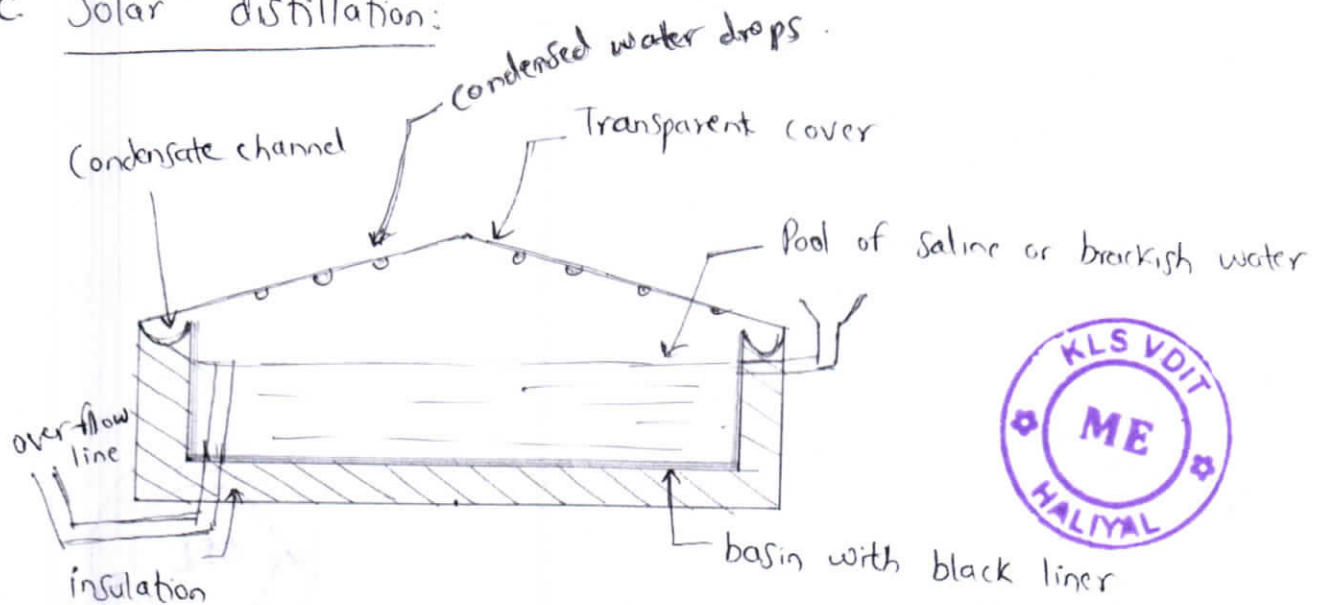 C. Solar distillation:
condensed water drops.
Transparent cover
Condensate channel
Pool of saline or brackish water
overflow
line
insulation
basin with black liner
KLS VDIT
ME
HALIYAL